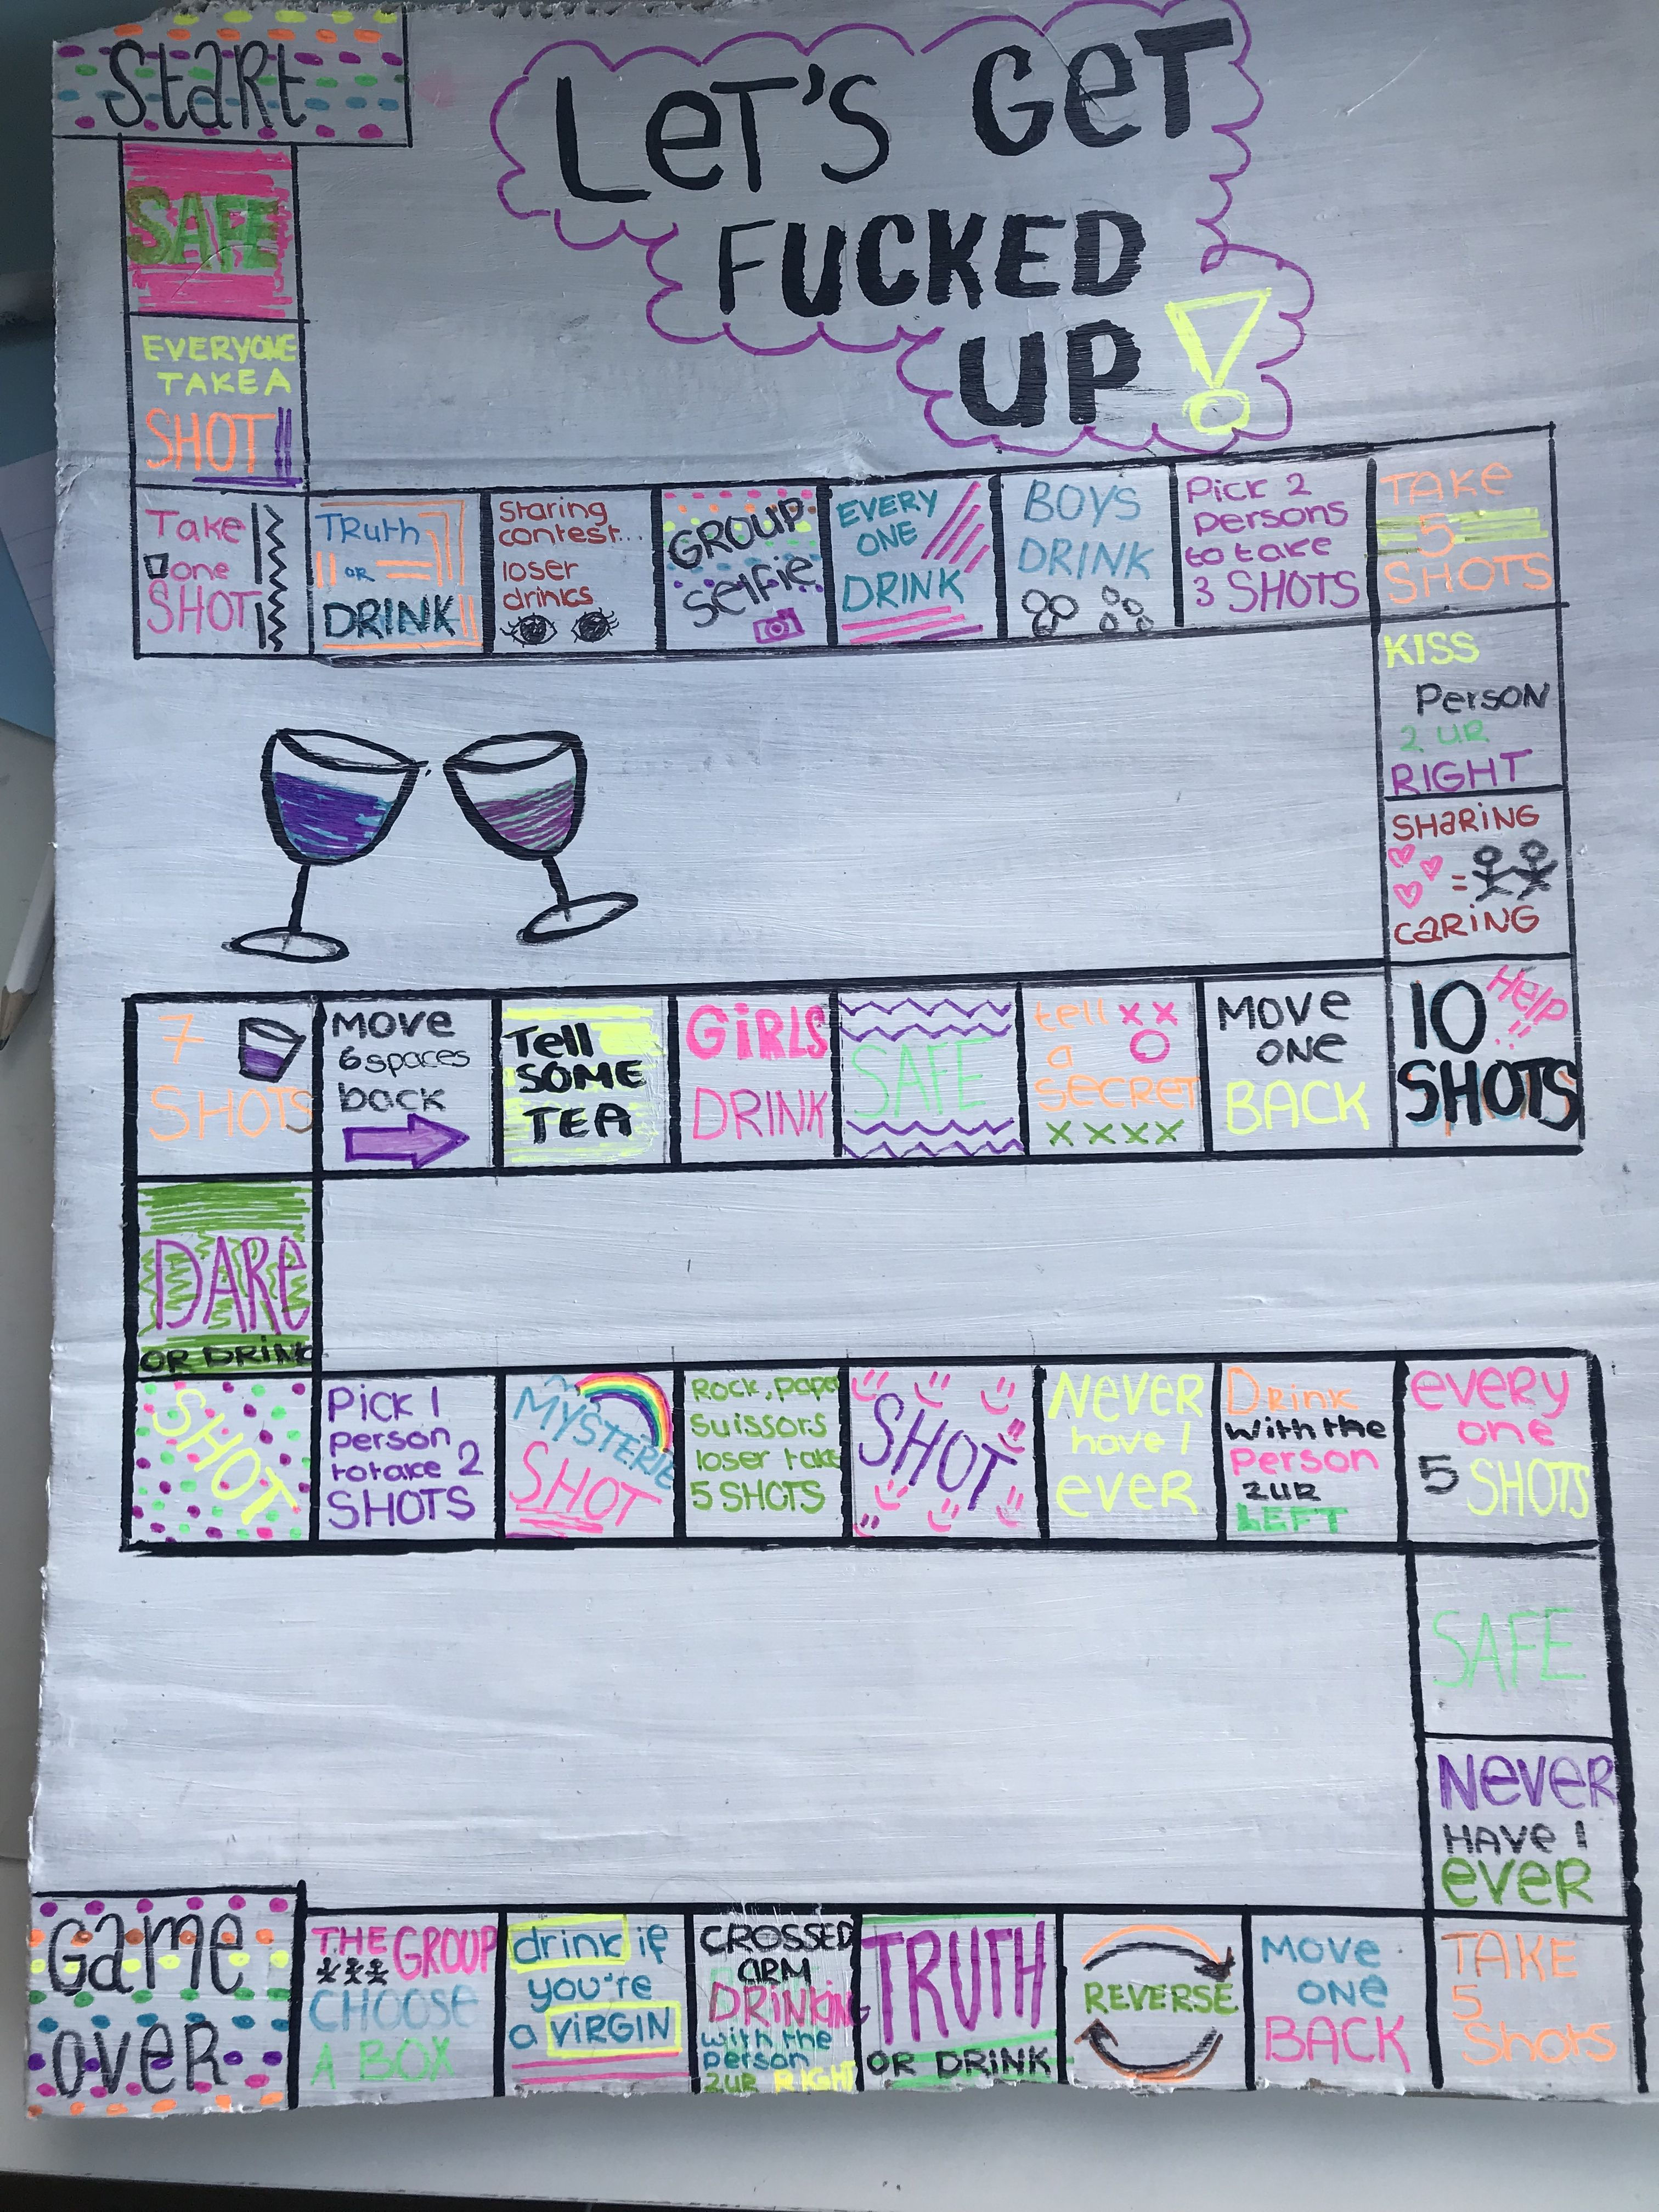 Start
LET'S GET
FUCKED
UP!
SAFE
EVERYONE
TAKE A
SHOT!!
Take
one
SHOT
TRuth
OR
DRINK
Staring
contest...
loser
drinks
GROUP
selfie
EVERY
ONE
DRINK
BOYS
DRINK
Pick 2
persons
to take
3 SHOTS
TAKE
5
SHOTS
KISS
PersoN
2 UR
RIGHT
SHARING
=
CARING
10
Help
SHOTS
MOVE
ONE
BACK
tell xx
a O
SECRET
xxxx
SAFE
GiRLS
DRINK
Tell
SOME
TEA
MOVE
6 spaces
back
7
SHOTS
DARE
OR DRINK
SHOT
Pick 1
person
to take 2
SHOTS
MYSTERIE
SHOT
Rock, pape
suissors
loser take
5 SHOTS
SHOT
NEVER
have I
ever
DRINK
with the
Person
2UR
LEFT
every
one
5 SHOTS
SAFE
Never
HAVE I
ever
TAKE
5
Shots
MOVE
ONE
BACK
REVERSE
TRUTH
OR DRINK
CROSSED
ARM
DRINKING
with the
person
2UR RIGHT
drink if
you're
a VIRGIN
THE GROUP
CHOOSE
A BOX
Game
over